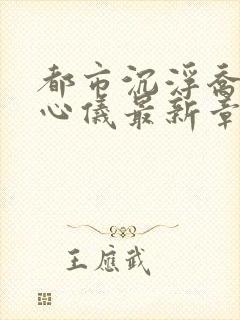 都市沉浮乔
心仪最新章
王应武